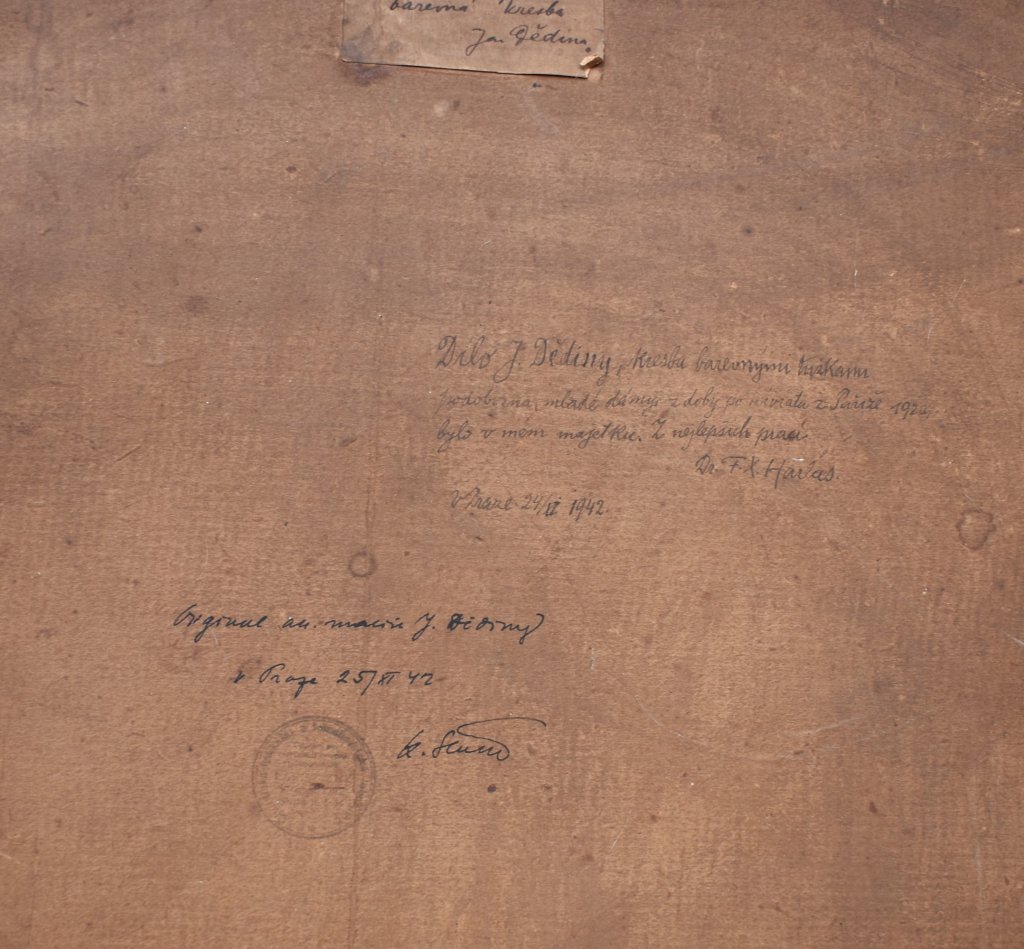 barevná kresba
Jan Dědina
Dílo J. Dědiny, kresba barevnými tužkami
podobizna mladé dámy z doby po návratu z Paříže
bylo v mém majetku. Z nejlepších prací.
Dr. F. X. Harlas.
V Praze 24/ 1942.
J. Dědiny
v Praze 25/XI 42